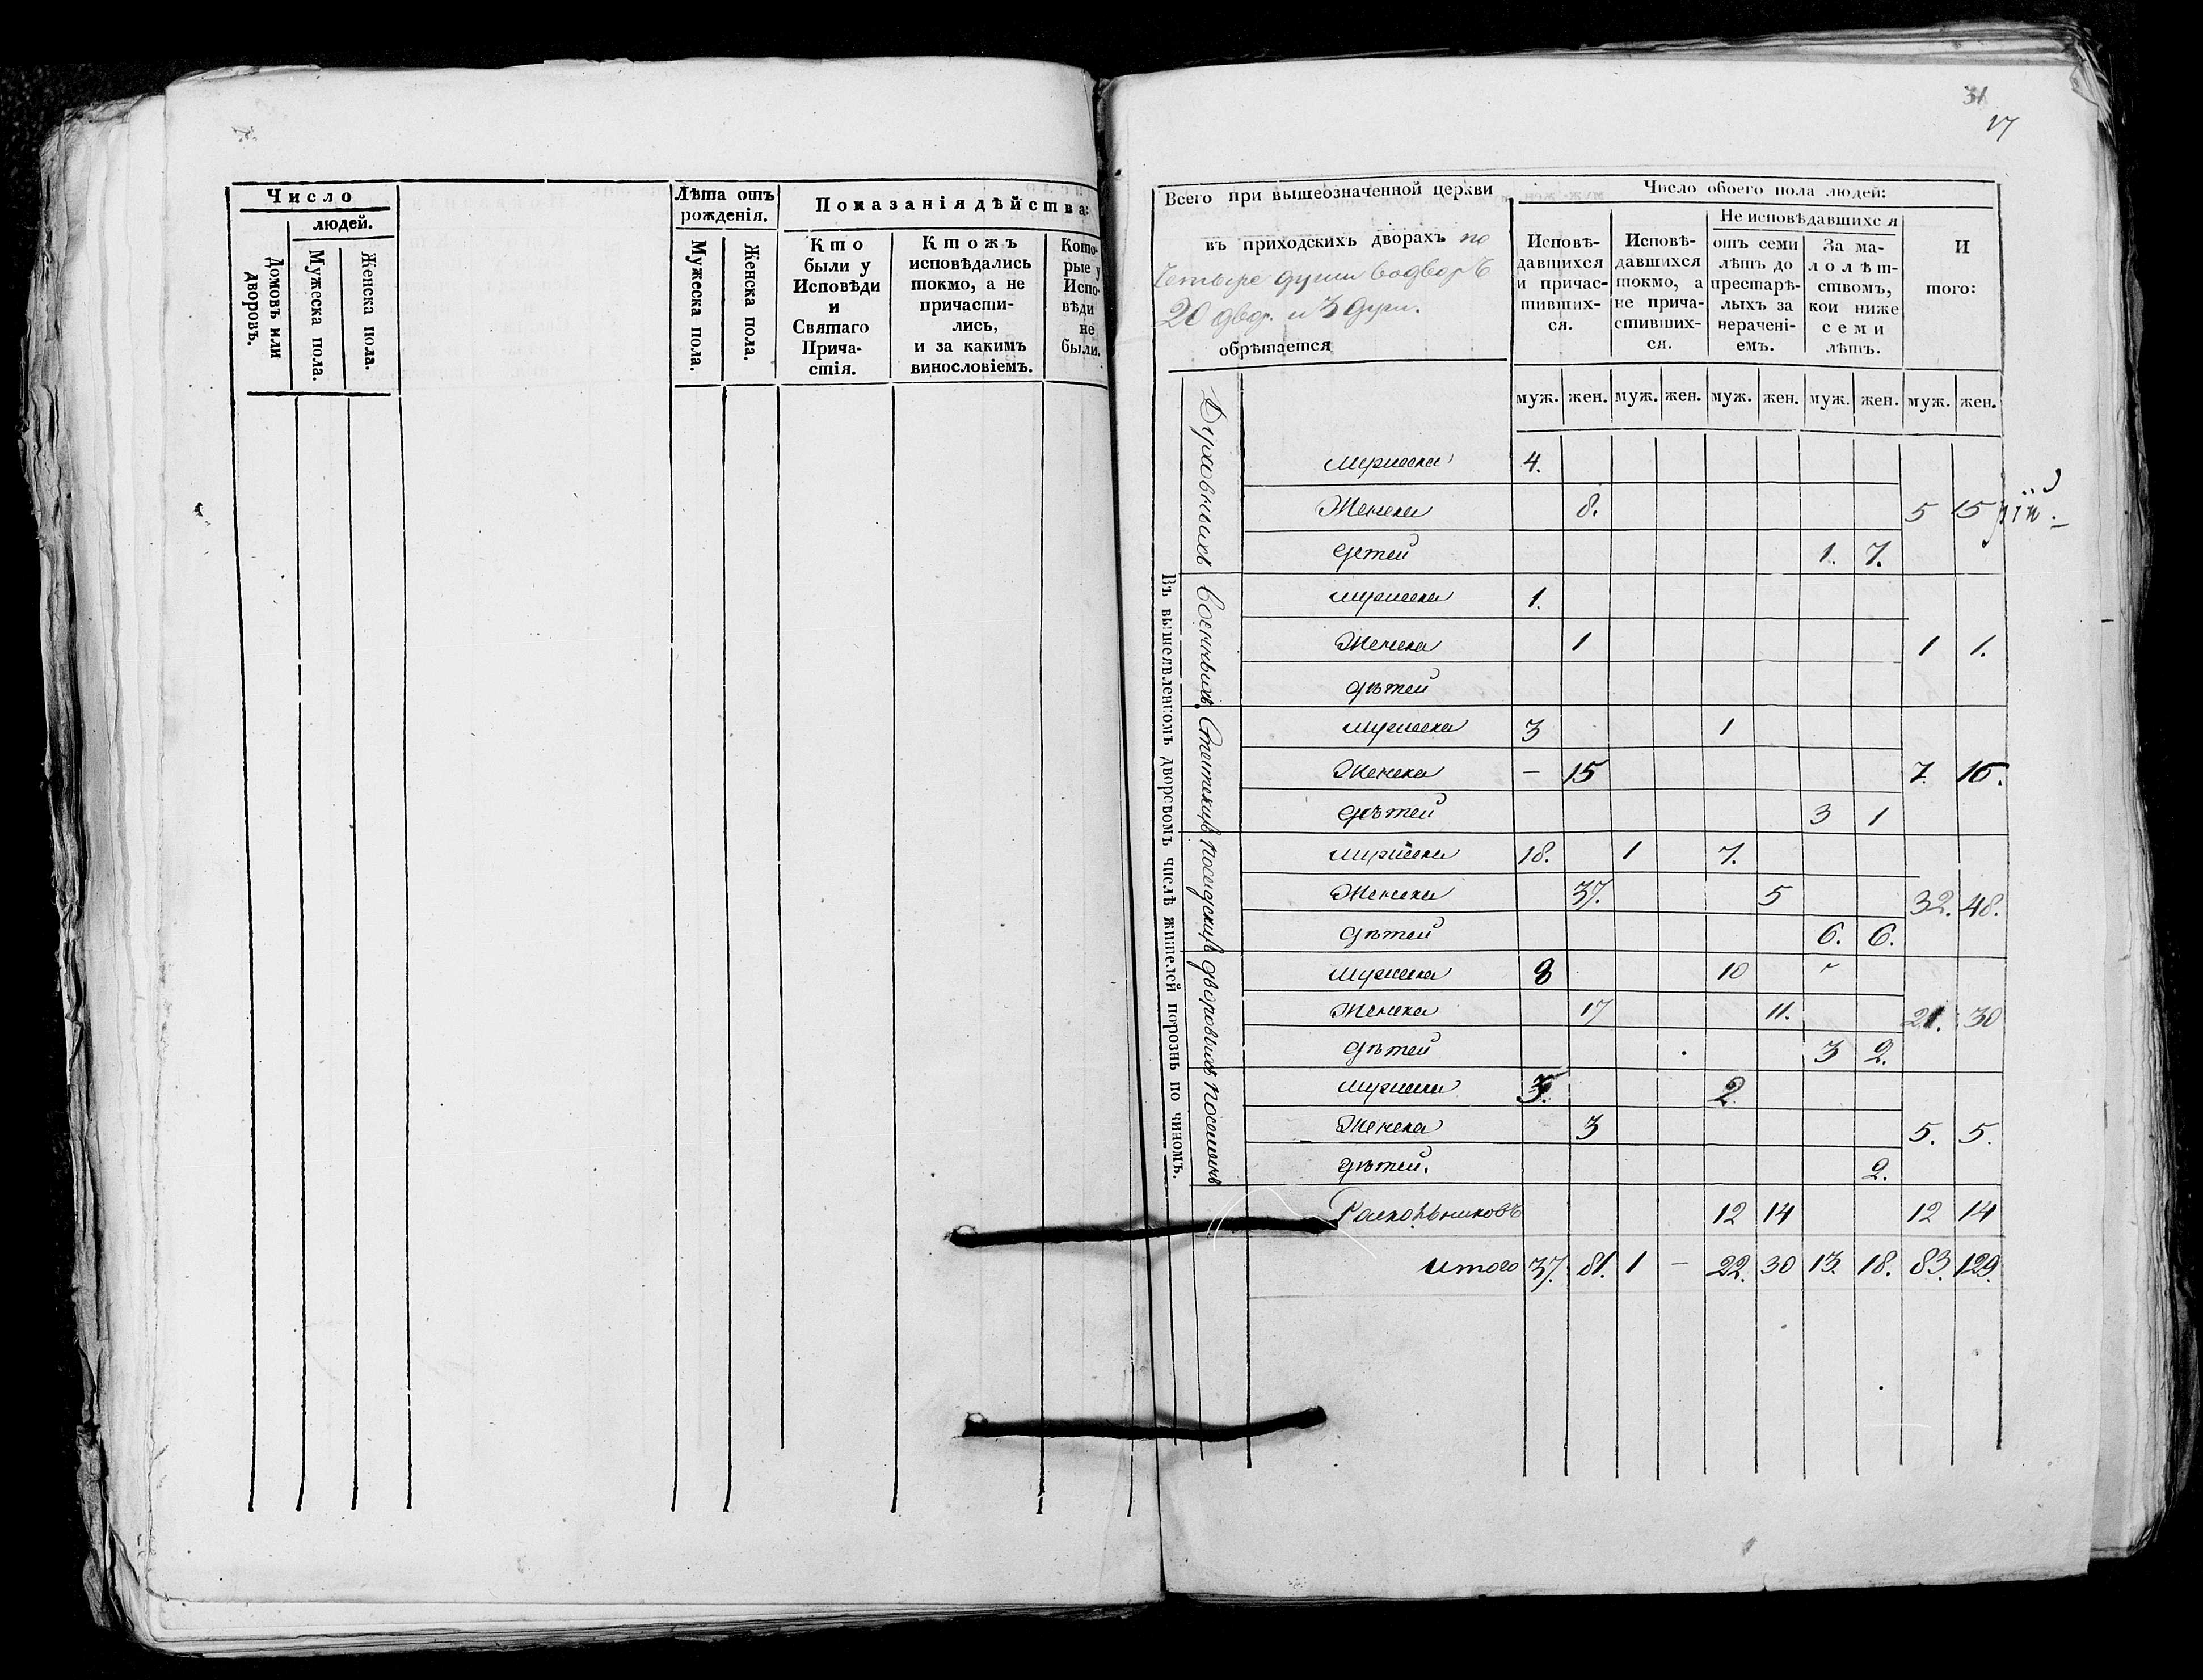 Число
людей.
Домовъ или дворовъ.
Мужеска пола.
Женска пола.
Лѣта отъ
рожденія.
Мужеска пола.
Женска пола.
Показанія дѣйства:
Кто
были у
Исповѣди
и
Святаго
Прича-
стія.
Ктожъ
исповѣдались
токмо, а не
причасти-
лись,
и за какимъ
винословіемъ.
Кото-
рые у
Испо-
вѣди
не
были.
31
17
Всего при вышеозначенной церкви
въ приходскихъ дворахъ по
четыре души водворѣ
20 двор. и 3 души.
обрѣтается
Число обоего пола людей:
Исповѣ-
давшихся
и причас-
тивших-
ся.
Исповѣ-
давшихся
токмо, а
не прича-
стивших-
ся.
Не исповѣдавшихся
отъ семи
лѣтъ до
престарѣ-
лыхъ за
нерачені-
емъ.
За ма-
лолѣт-
ствомъ,
кои ниже
семи
лѣтъ.
И
того:
муж. жен. муж. жен. муж. жен. муж. жен. муж. жен.
Въ вышеявленномъ дворовомъ числѣ жителей порознь по чиномъ.
Духовныхъ
мужеска 4.
Женска 8. 5 15
детей 1. 7.
военныхъ
мужеска 1.
Женска 1 1 1.
дѣтей
Статскихъ
мужеска 3 1
Женска – 15 7. 16.
дѣтей 3 1
посадскихъ
мужеска 18. 1 7.
Женска 37. 5 32. 48.
дѣтей 6. 6.
дворовыхъ
мужеска 8 10
Женска 17 11. 21. 30
дѣтей 3 2.
поселянъ
мужеска 3. 2
Женска 3 5. 5.
дѣтей. 2.
Раскольниковъ 12 14 12 14
итого 37. 81. 1 – 22. 30 13. 18. 83. 129.